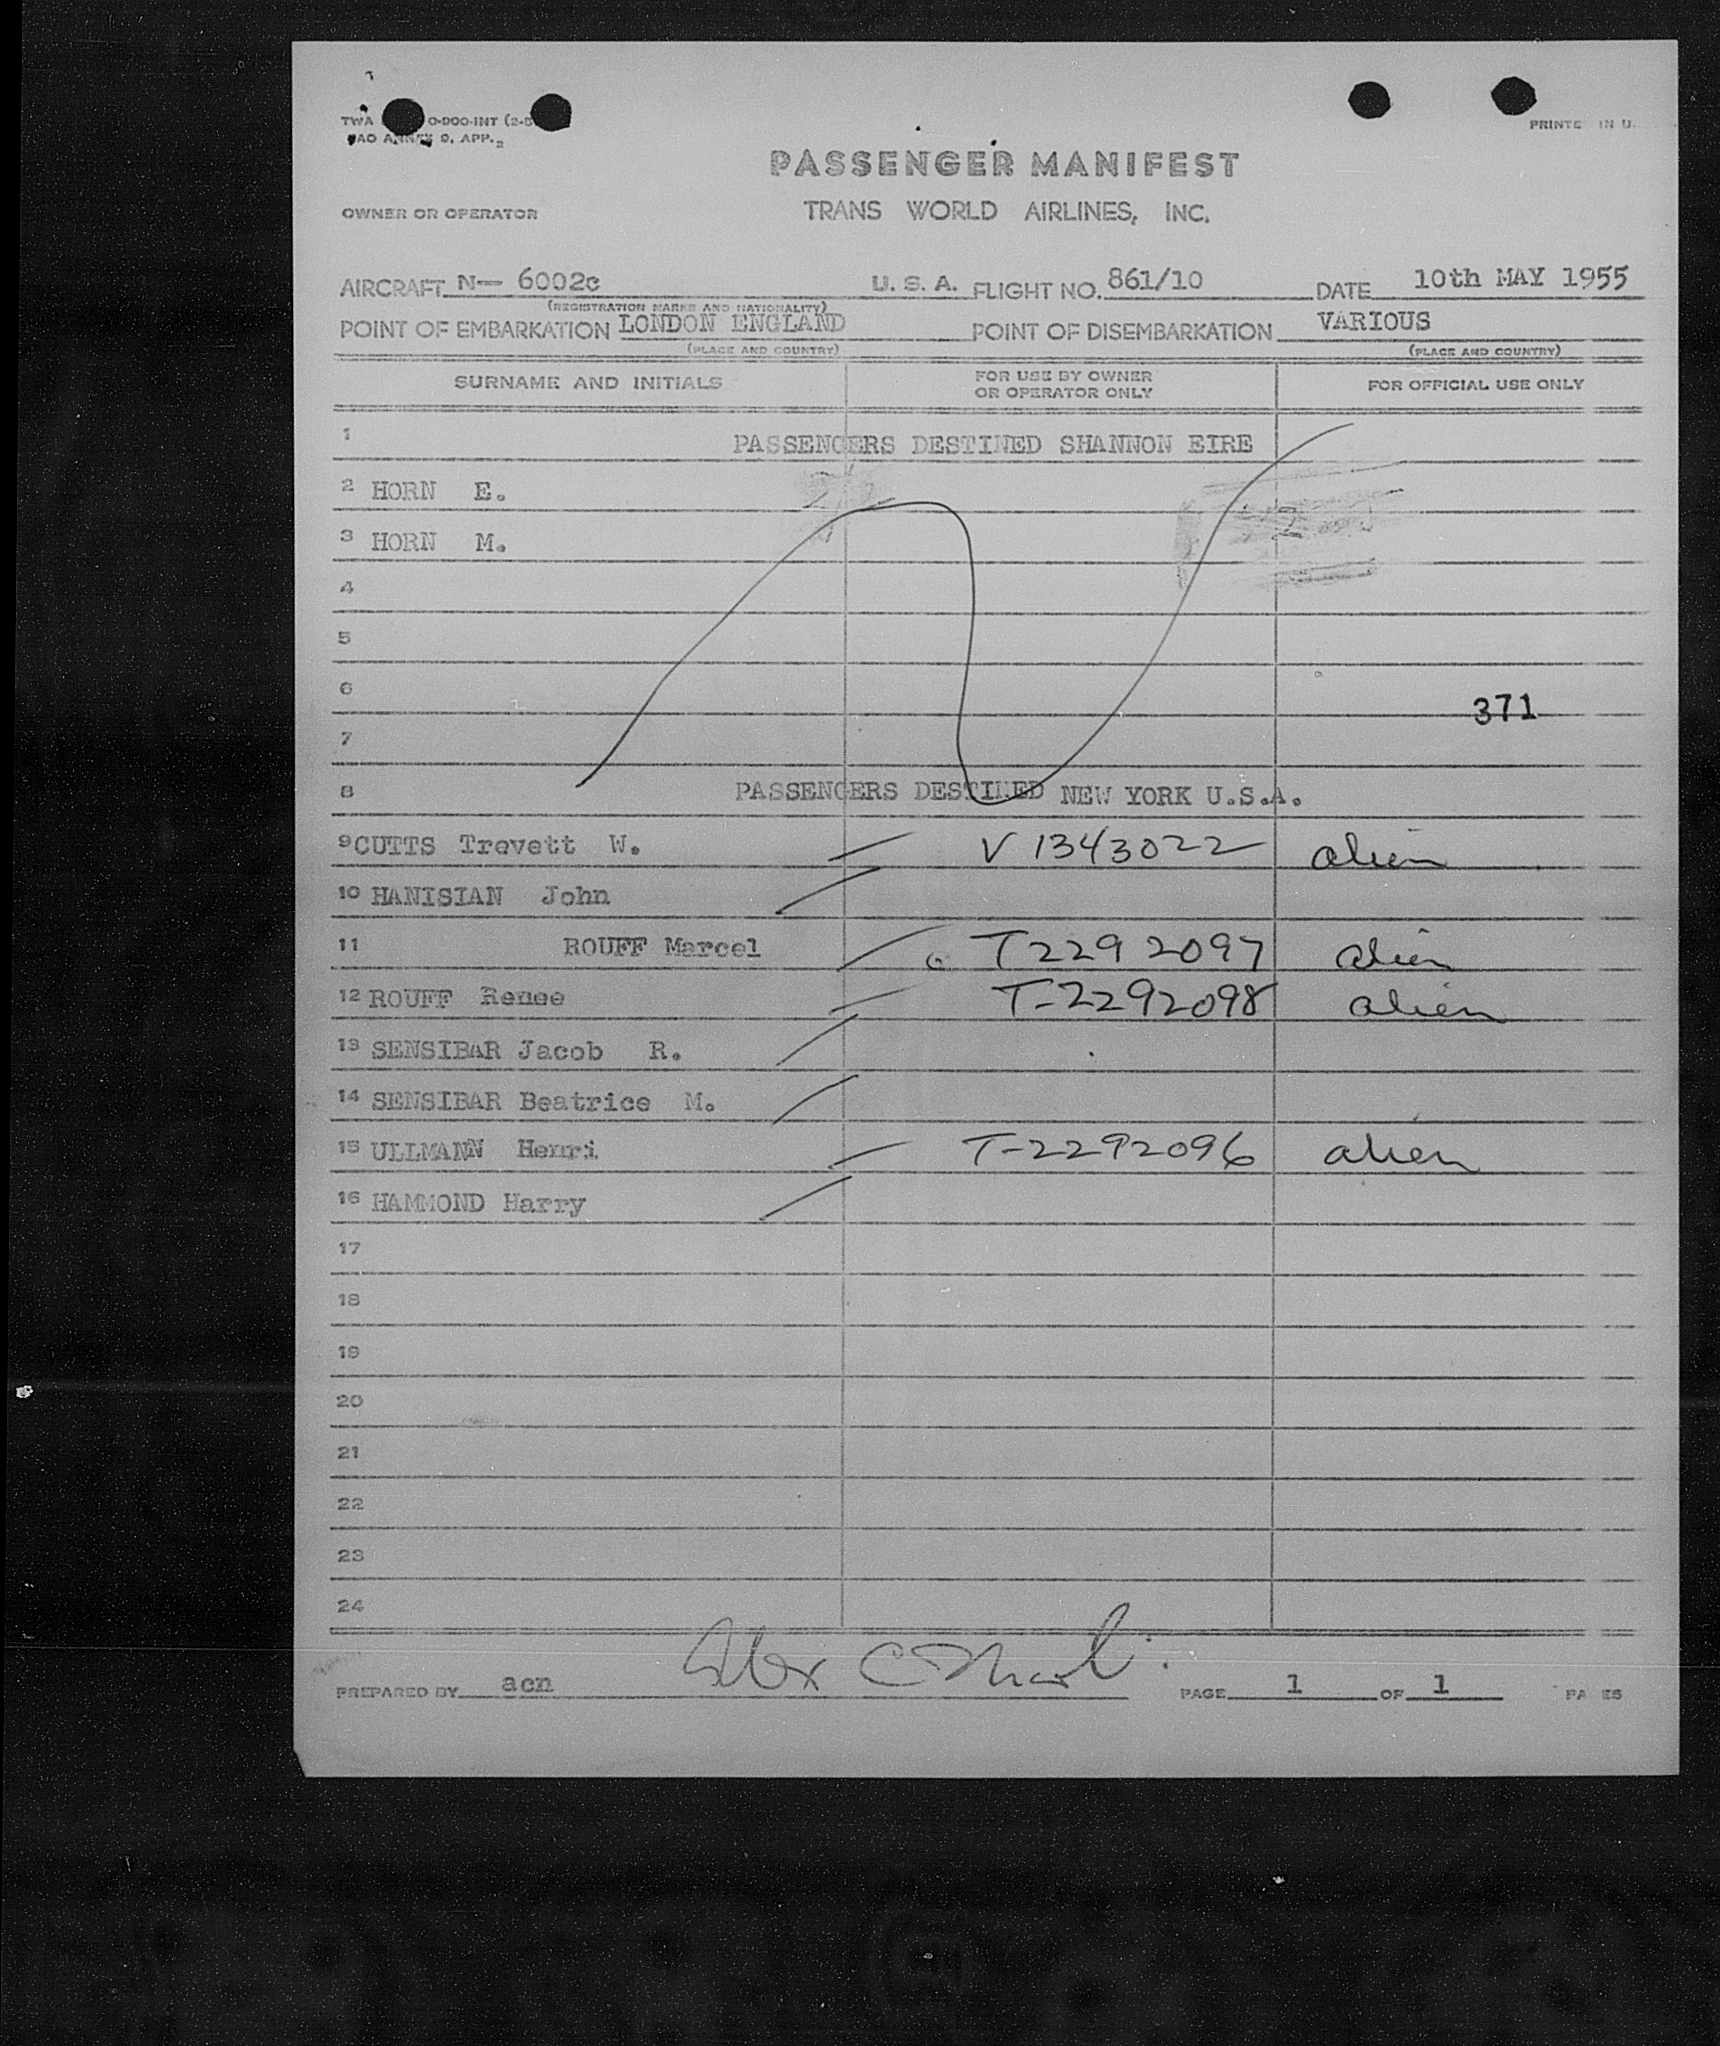 TWA O-900-INT (2-5
APP. 2
PRINTE IN U.
PASSENGER MANIFEST
OWNER OR OPERATOR TRANS WORLD AIRLINES, INC.
AIRCRAFT N— 6002c U. S. A. FLIGHT NO. 861/10 DATE 10th MAY 1955
(REGISTRATION MARKS AND NATIONALITY)
POINT OF EMBARKATION LONDON ENGLAND POINT OF DISEMBARKATION VARIOUS
(PLACE AND COUNTRY) (PLACE AND COUNTRY)
SURNAME AND INITIALS FOR USE BY OWNER OR OPERATOR ONLY FOR OFFICIAL USE ONLY
1 PASSENGERS DESTINED SHANNON EIRE
2 HORN E.
3 HORN M.
4
5
6 371
7
8 PASSENGERS DESTINED NEW YORK U.S.A.
9 CUTTS Trevett W. V 1343022 alien
10 HANISIAN John
11 ROUFF Marcel T2292097 alien
12 ROUFF Renee T-2292098 alien
13 SENSIBAR Jacob R.
14 SENSIBAR Beatrice M.
15 ULLMANN Henri T-2292096 alien
16 HAMMOND Harry
17
18
19
20
21
22
23
24
PREPARED BY acn PAGE 1 OF 1 PA ES